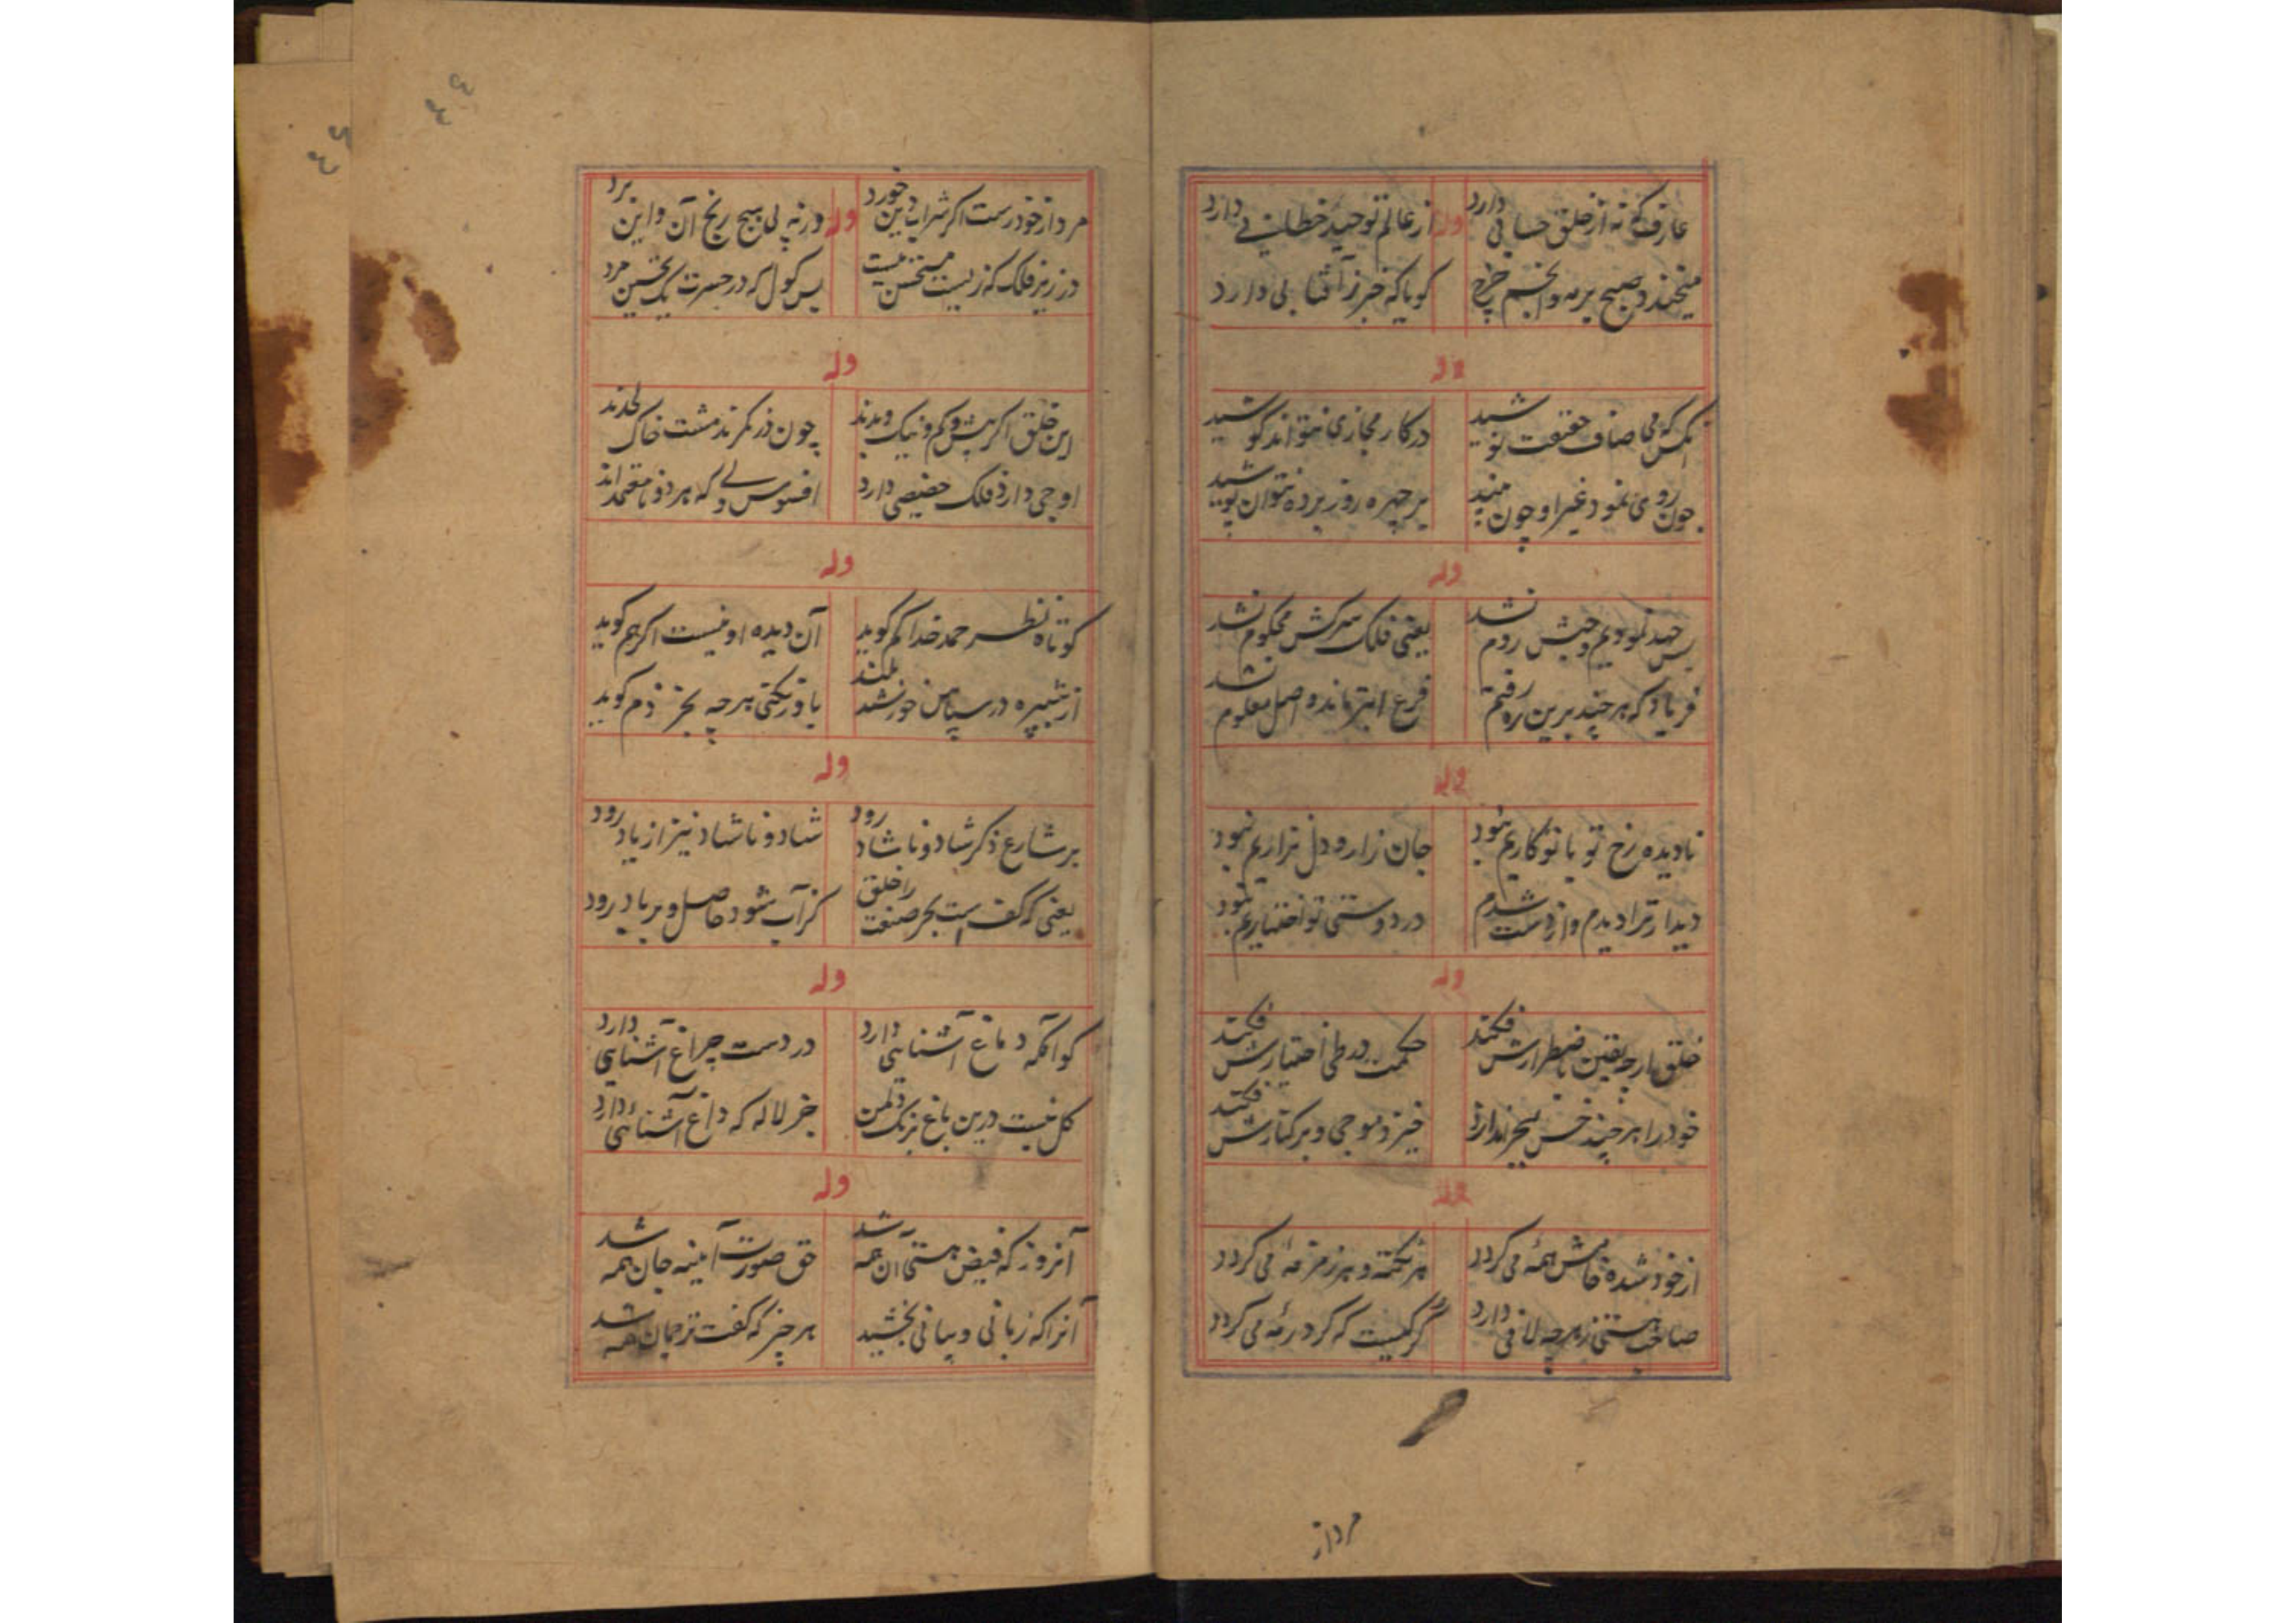 عارف که نه از خلق حسابی دارد وله از عالم توحید خطابی دارد
میخندد صبح بر مه و انجم چرخ کویا که خبر ز آفتابی دارد
وله
آنکس که می صاف حقیقت نوشید در کار مجازی نتواند کوشید
چون روی نمود غیر او چون بیند بر چهره روز پرده نتوان پوشید
وله
بس جهد نمودیم و حبش روم نشد یعنی فلک سرکش محکوم نشد
فریاد که هر چند برین ره رفتیم فرع ابتر ماند و اصل معلوم نشد
وله
نادیده رخ تو با تو کاریم نبود جان زار و دل نزاریم نبود
دیدار ترا دیدم و از دست شدم در دوستی تو اختیاریم نبود
وله
خلق ارچه یقین باضطرارش فکند حکمت در ظن اختیارش فکند
خود را هر چند خس ببحر اندازد خیزد موجی و بر کنارش فکند
وله
از خود شده فاش همه می کردد هر نکته و هر زمزمهٔ می کردد
صاحب هستی ز هرچه لافی دارد کر نیست که کرد رمهٔ می کردد
مرد از
مرد از خود رست اکر شراب دین خورد وله ورنه پی هیچ رنج آن و این برد
در زیر فلک که زیست مستحسن نیست بس کول که در حسرت یک تحسین مرد
وله
این خلق اکر بیش و کم و نیک و بدند چون در نکرند مشت خاک لحدند
اوجی دارد فلک حضیضی دارد افسوس ولی که هر دو نامعتمدند
وله
کوتاه نظر حمد خدا کم کوید آن دیده او نیست اکر هم کوید
از شبپره در سپاس خورشید بلند باور نکنی هرچه بجز ذم کوید
وله
بر شارع ذکر شاد و ناشاد رود شاد و ناشاد نیز از یاد رود
یعنی که کف است بحر صنعت را خلق کز آب شود حاصل و بر باد رود
وله
کو آنکه دماغ آشنایی دارد در دست چراغ آشنایی دارد
کل نیست درین باغ برنک دل من جز لاله که داغ آشنائی دارد
وله
آنروز که فیض هستی آن همه شد حق صورت آینه جان همه شد
آنرا که زبانی و بیانی بخشید هر چیز که گفت ترجمان همه شد